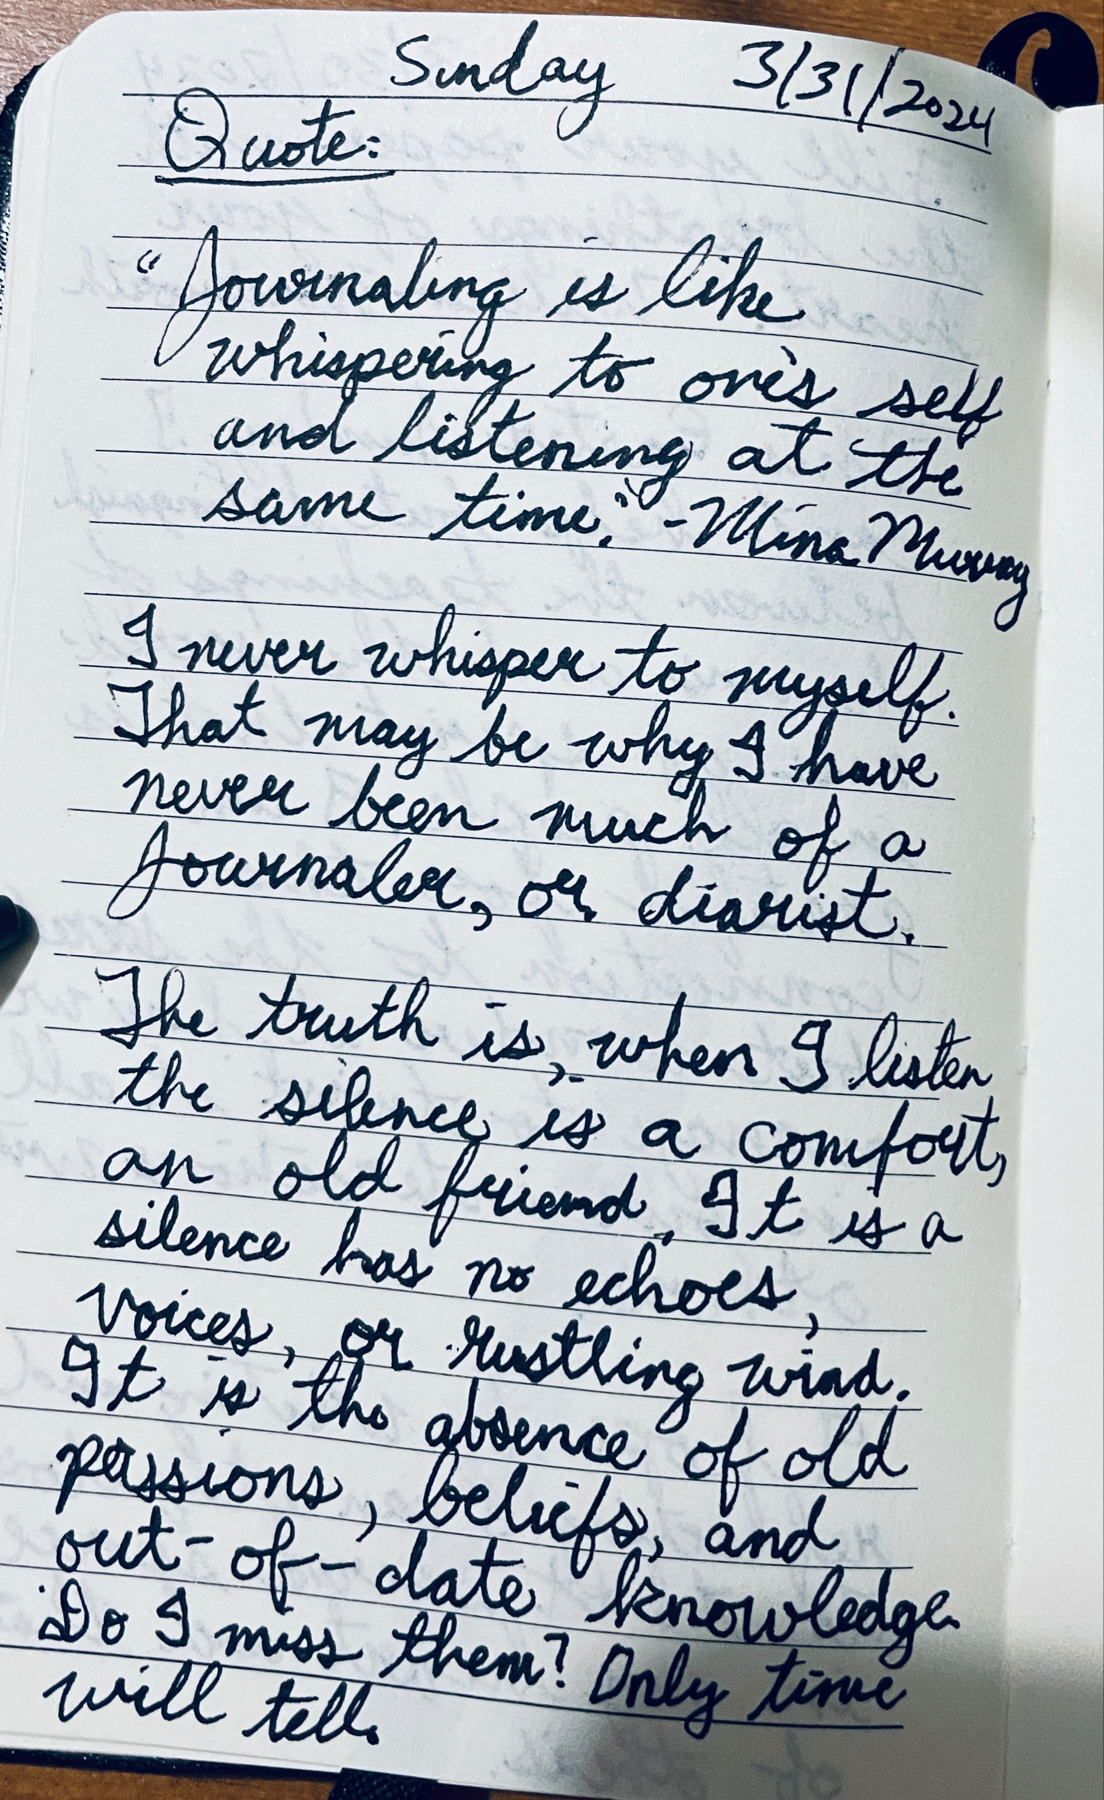 Sunday 3/31/2024
Quote:
"Journaling is like
whispering to one's self
and listening at the
same time." - Mina Murray
I never whisper to myself.
That may be why I have
never been much of a
Journaler, or diarist.
The truth is, when I listen
the silence is a comfort,
an old friend. It is a
silence has no echoes,
voices, or rustling wind.
It is the absence of old
passions, beliefs, and
out-of-date knowledge.
Do I miss them? Only time
will tell.